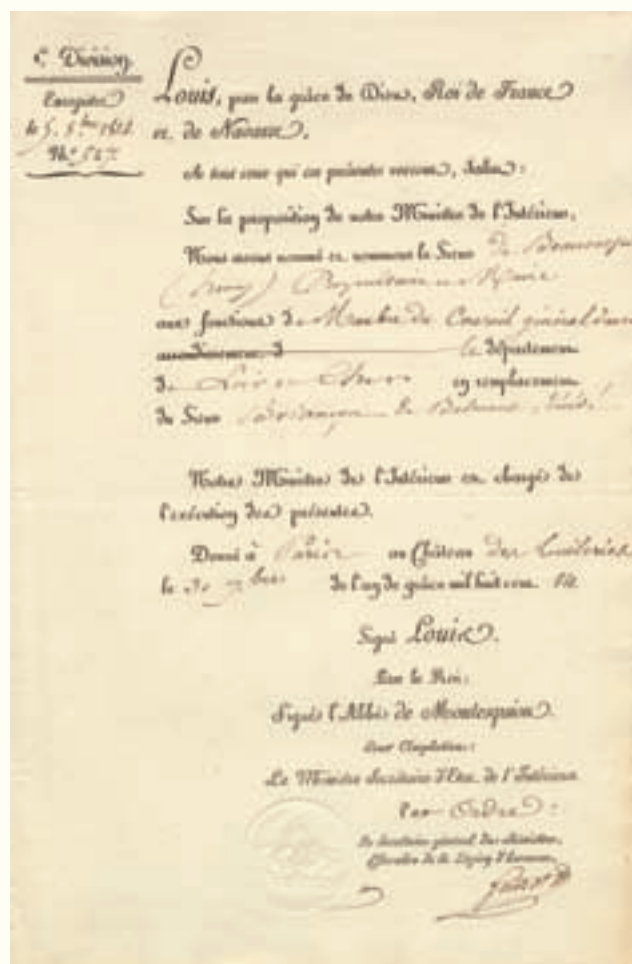 Division
Enregistré
Louis, par la grâce de Dieu, Roi de France
et de Navarre,
A tous ceux qui ces présentes verront, Salut:
Sur la proposition de notre Ministre de l'Intérieur,
Nous avons nommé et nommons le Sieur de
Propriétaire
aux fonctions de Membre du Conseil général
arrondissement de le département
de Loir et Cher en remplacement
du Sieur de
Notre Ministre de l'Intérieur est chargé de
l'exécution des présentes.
Donné à Paris au Château des Tuileries
le 30 7bre de l'an de grâce mil huit cent 14
Signé Louis.
Par le Roi:
Signé l'Abbé de Montesquiou.
Pour Ampliation:
Le Ministre Secrétaire d'Etat de l'Intérieur
Par Ordre:
Le Secrétaire général du Ministère,
Chevalier de la Légion d'honneur,
Guizot